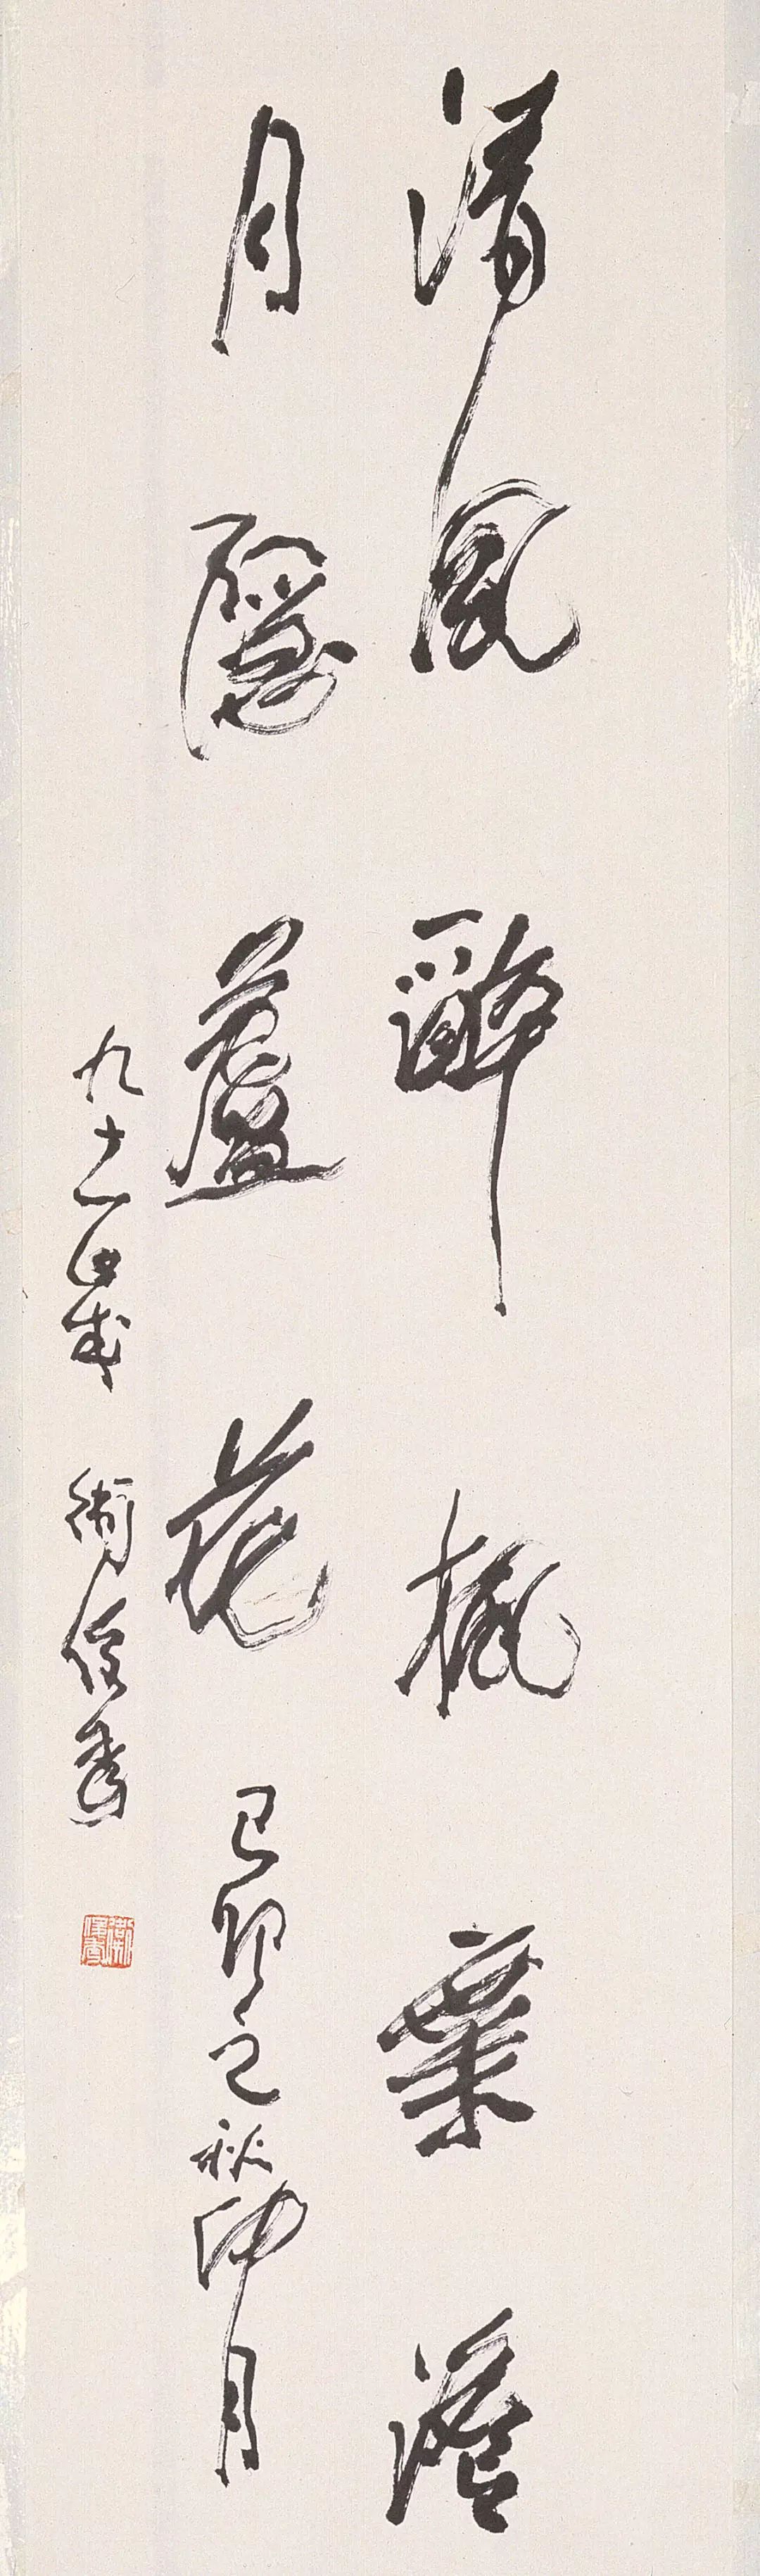 清風醉楓葉澹
月隱蘆花己卯之秋仲月
九十一白歲衛俊秀
衛俊秀